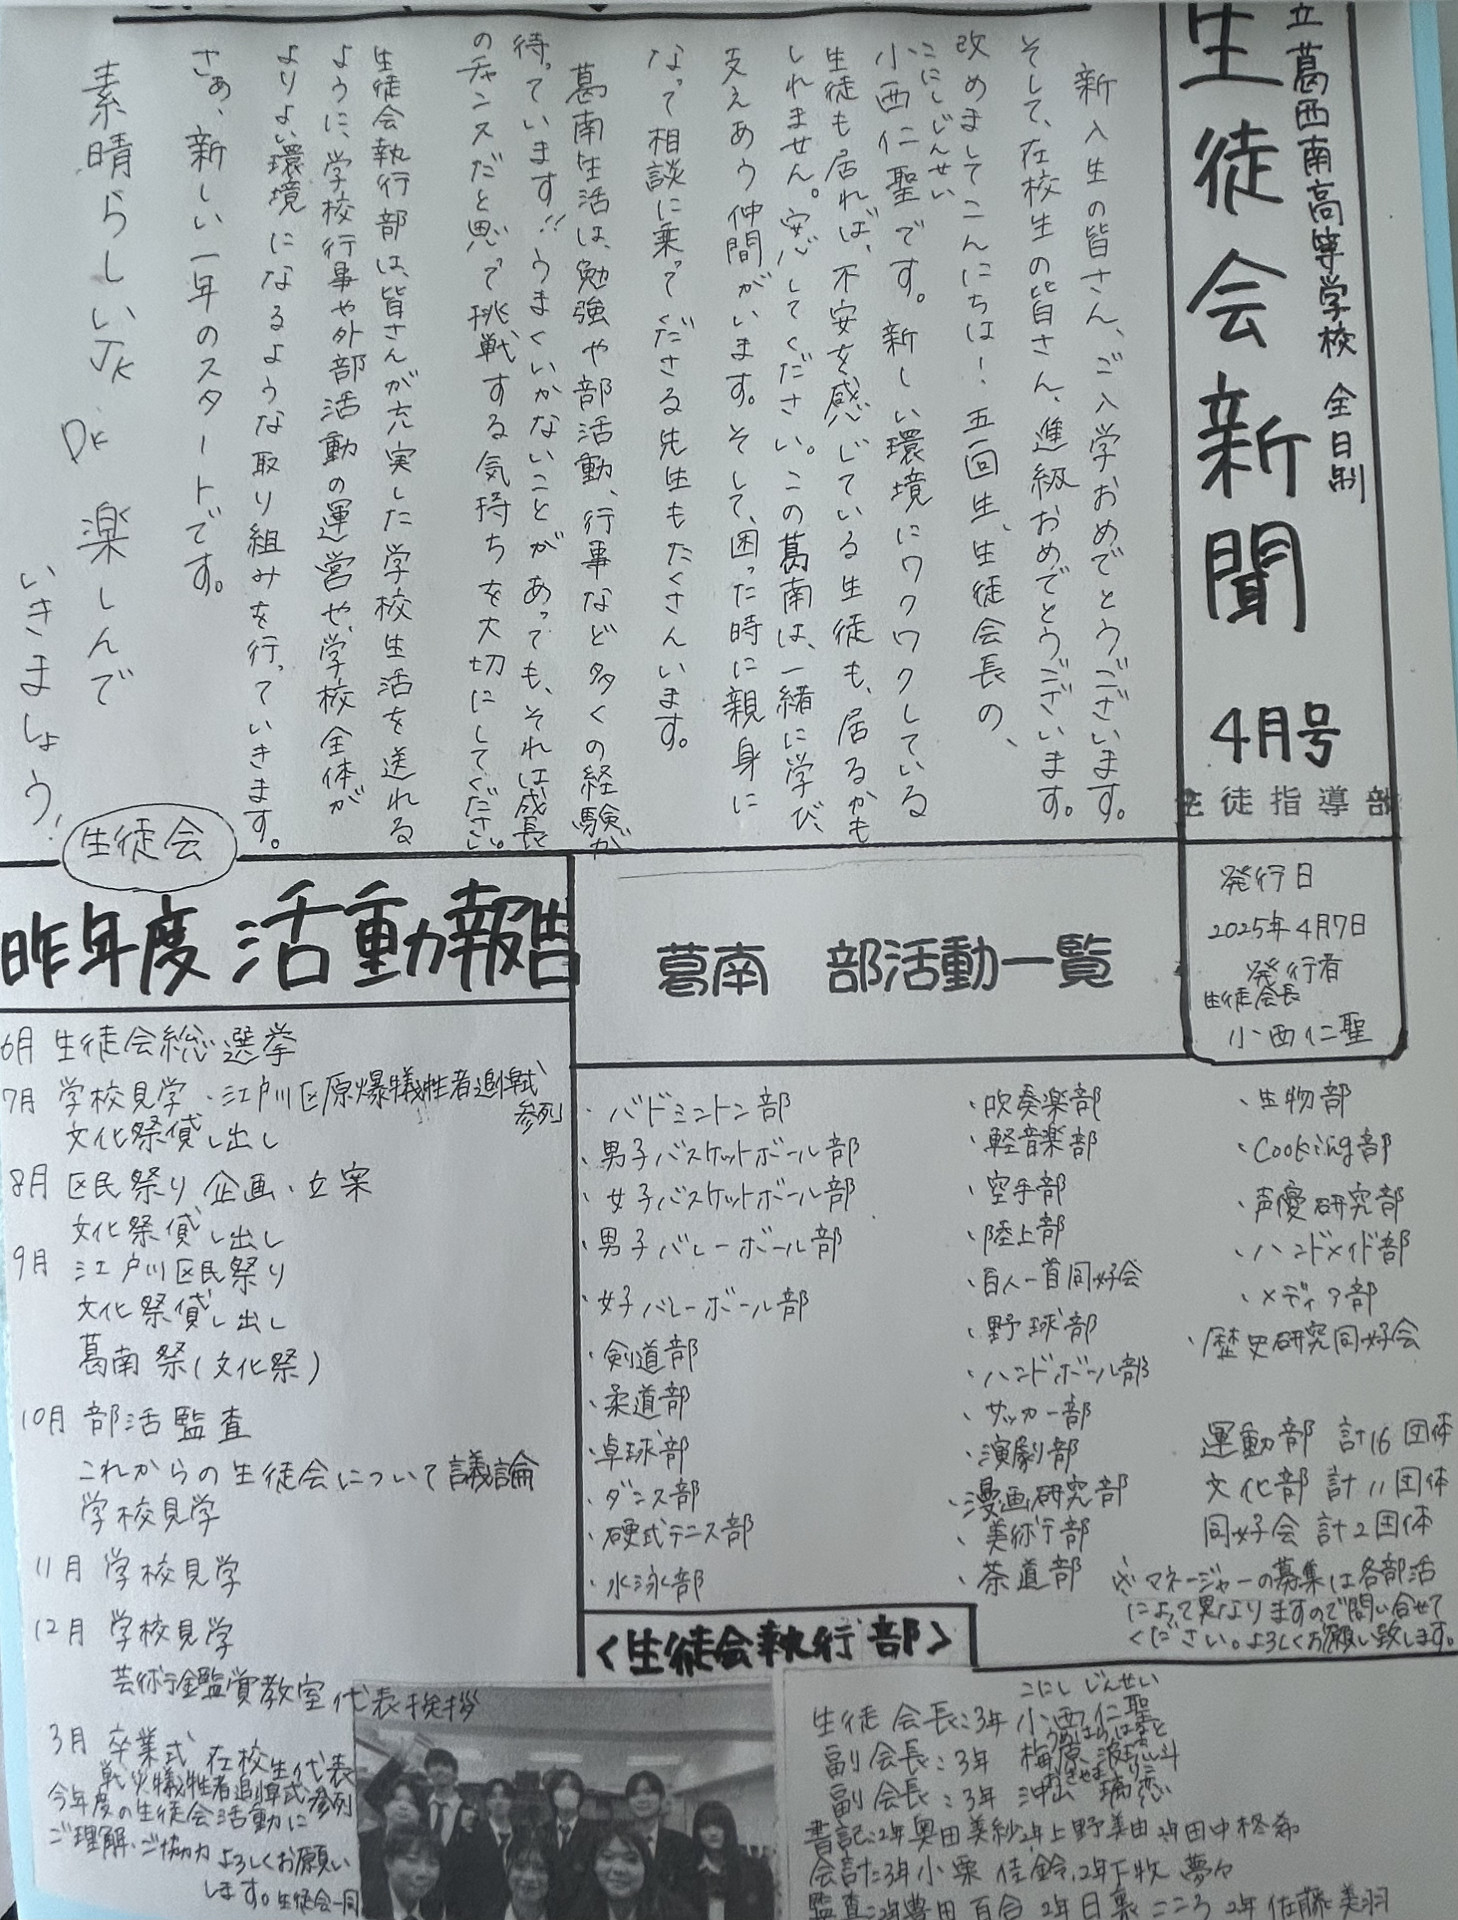 立葛西南高等学校 全日制
生徒会新聞 4月号
生徒指導部
発行日
2025年4月7日
発行者
生徒会長
小西仁聖
新入生の皆さん、ご入学おめでとうございます。
そして、在校生の皆さん、進級おめでとうございます。
改めましてこんにちは！五回生、生徒会長の、
こにしじんせい
小西仁聖です。新しい環境にワクワクしている
生徒も居れば、不安を感じている生徒も、居るかも
しれません。安心してください。この葛南は、一緒に学び、
支えあう仲間がいます。そして、困った時に親身に
なって相談に乗ってくださる先生もたくさんいます。
葛南生活は、勉強や部活動、行事など多くの経験が
待っています!!うまくいかないことがあっても、それは成長
のチャンスだと思って挑戦する気持ちを大切にしてください。
生徒会執行部は、皆さんが充実した学校生活を送れる
ように、学校行事や外部活動の運営や、学校全体が
よりよい環境になるような取り組みを行っていきます。
さぁ、新しい一年のスタートです。
素晴らしいJK DK 楽しんで
いきましょう！
生徒会
昨年度 活動報告
6月 生徒会総選挙
7月 学校見学・江戸川区原爆犠牲者追悼式
参列
文化祭貸し出し
8月 区民祭り 企画・立案
文化祭貸し出し
9月 江戸川区民祭り
文化祭貸し出し
葛南祭(文化祭)
10月 部活監査
これからの生徒会について議論
学校見学
11月 学校見学
12月 学校見学
芸術鑑賞教室 代表挨拶
3月 卒業式 在校生代表
戦災犠牲者追悼式参列
今年度の生徒会活動に
ご理解・ご協力 よろしくお願い
します。生徒会一同
葛南 部活動一覧
・バドミントン部
・男子バスケットボール部
・女子バスケットボール部
・男子バレーボール部
・女子バレーボール部
・剣道部
・柔道部
・卓球部
・ダンス部
・硬式テニス部
・水泳部
・吹奏楽部
・軽音楽部
・空手部
・陸上部
・百人一首同好会
・野球部
・ハンドボール部
・サッカー部
・演劇部
・漫画研究部
・美術部
・茶道部
・生物部
・Cooking部
・声優研究部
・ハンドメイド部
・メディア部
・歴史研究同好会
運動部 計16団体
文化部 計11団体
同好会 計2団体
※マネージャーの募集は各部活
によって異なりますので問い合せて
ください。よろしくお願い致します。
<生徒会執行部>
こにし じんせい
生徒会長:3年 小西仁聖
うめはら はると
副会長:3年 梅原 波琉斗
おきやま りこ
副会長:3年 沖山 璃恋
書記:2年奥田美紗 2年上野美由 2年田中柊希
会計:3年小栗佳鈴、2年下牧夢々
監査:2年豊田百合 2年日裏こころ 2年佐藤美羽